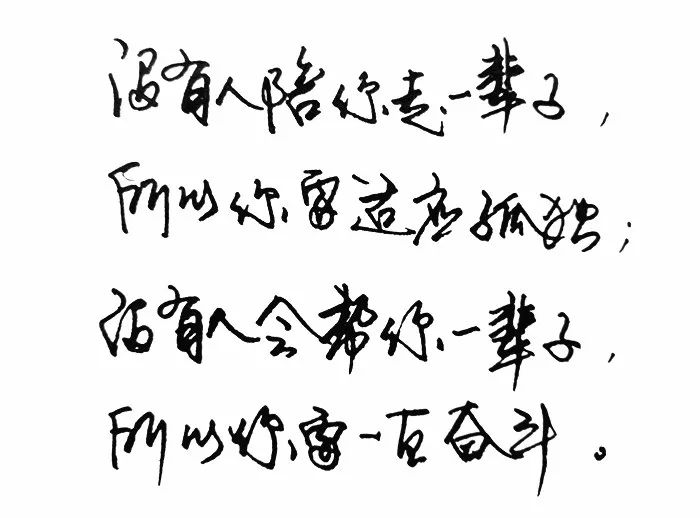 没有人陪你走一辈子，
所以你需适应孤独；
没有人会帮你一辈子，
所以你需一直奋斗。